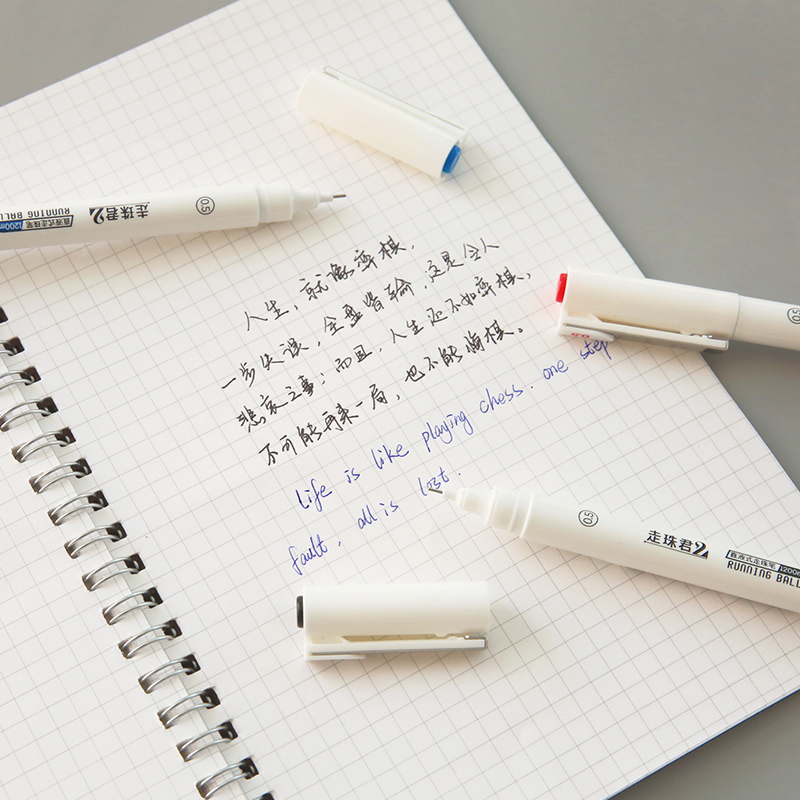 0.5
走珠君2
直液式走珠笔 1200m
RUNNING BALL
人生，就像弈棋，
一步失误，全盘皆输，这是令人
悲哀之事；而且，人生还不如弈棋，
不可能再来一局，也不能悔棋。
life is like playing chess. one step
fault, all is lost.
0.5
0.5
走珠君2
直液式走珠笔 1200m
RUNNING BALL